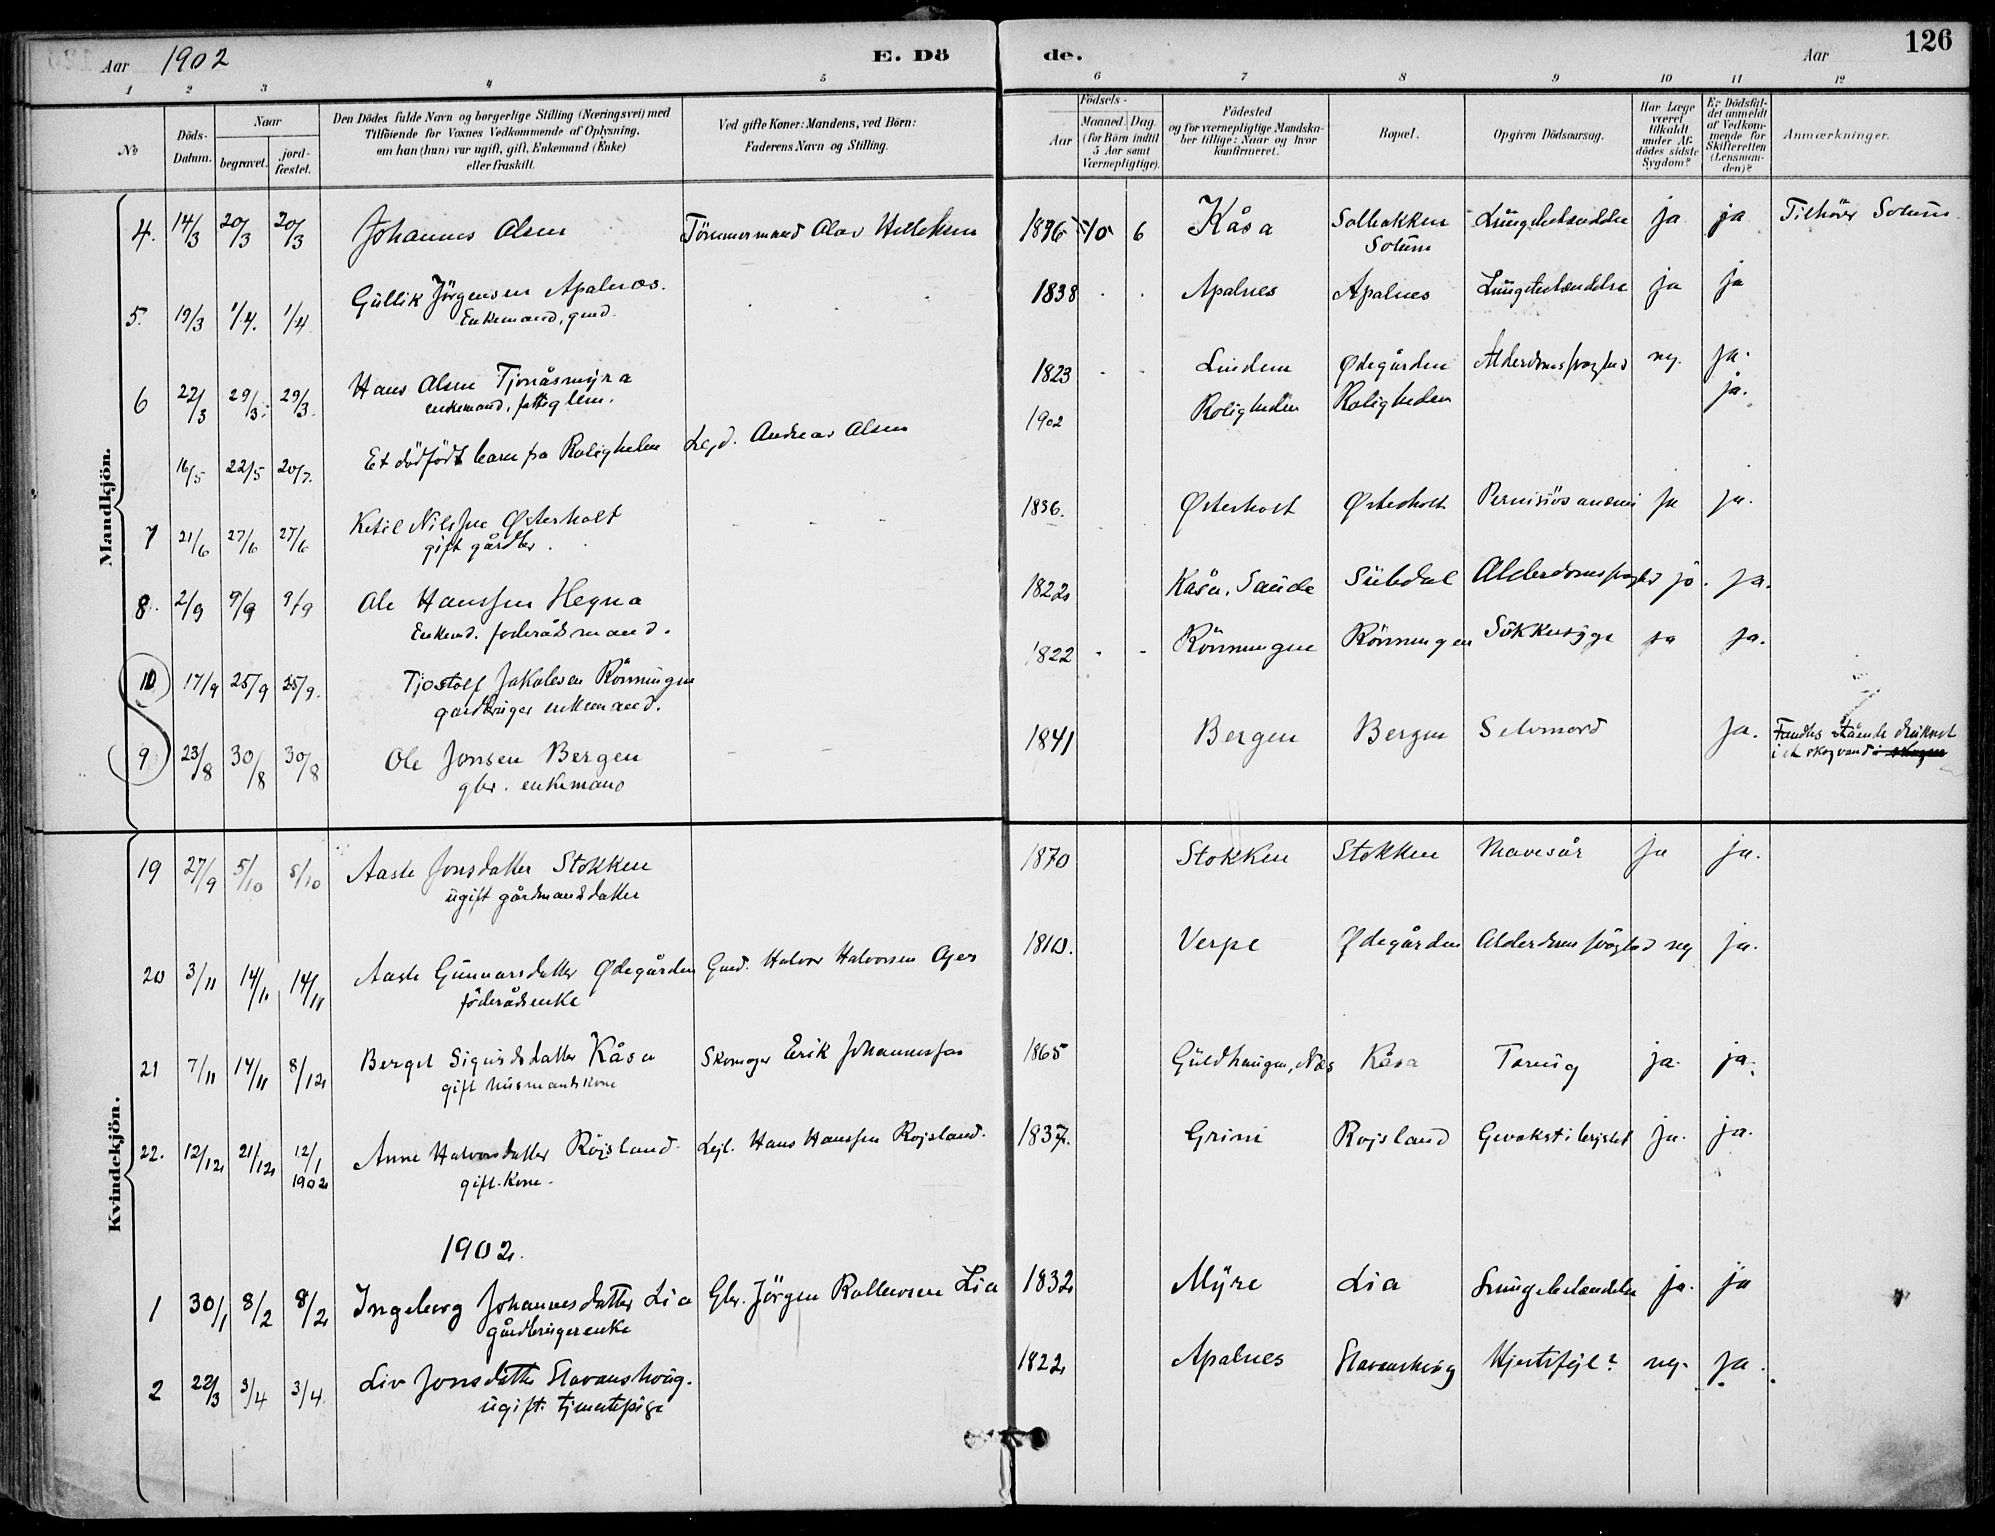 Aar 1902 E. Dö de. Aar 126
1 2 3 4 5 6 7 8 9 10 11 12
№
Döds-
Datum.
Naar
begravet.
jord-
fæstet.
Den Dödes fulde Navn og borgerlige Stilling (Næringsvei) med
Tilföiende for Voxnes Vedkommende af Oplysning,
om han (hun) var ugift, gift, Enkemand (Enke)
eller fraskilt.
Ved gifte Koner: Mandens, ved Börn:
Faderens Navn og Stilling.
Födsels-
Aar
Maaned. Dag.
(for Börn indtil
5 Aar samt
Værnepligtige).
Födested
og for værnepligtige Mandska-
ber tillige: Naar og hvor
konfirmeret.
Bopæl.
Opgiven Dödsaarsag.
Har Læge
været
tilkaldt
under Af-
dödes sidste
Sygdom?
Er Dödsfal-
det anmeldt
af Vedkom-
mende for
Skifteretten
(Lensman-
den)?
Anmærkninger.
Mandkjön.
4. 14/3 20/3 20/3 Johannes Olsen Tömmermand Olav 1896 10 6 Kåsa Solbakken Lungebetændelse ja ja Tilhörer Solum
Solum
5. 19/3 1/4. 1/4 Gullik Jörgensen Apalnæs. 1838 Apalnes Apalnes Lungebetændelse ja ja
Enkemand, gmd.
6 22/3 29/3. 29/3. Hans Olsen Tjonåsmyra 1823 Lindem Ødegården Alderdomssvaghed ney. ja.
enkemand, fattiglem.
16/5 22/5 20/7. Et dödfödt barn fra Roligheden Lejd. Andreas Olsen 1902 Roligheden Roligheden ja.
7 21/6 27/6 27/6 Ketil Nilssen Østerholt 1836. Østerholt Østerholt Perniciös anæmi ja ja.
gift gårdbr.
8. 2/9 9/9 9/9 Ole Hanssen Hegna 1822 Kåsa, Saude Alderdomssvaghed ja. ja.
Enkemd. foderådsmand.
10 17/9 25/9 25/9. Tjostolf Jakobsen Rönningen 1822 Rönningen Rönningen Sukkersyge ja ja.
gardbruger enkemand.
9 23/8 30/8 30/8 Ole Jonsen Bergen 1841 Bergen Bergen Selvmord ja. Fandtes stående druknet
gbr. enkemand i et skogvand i skogen
Kvindekjön.
19 27/9 5/10 5/10 Aaste Jonsdatter Stokken 1870 Stokken Stokken Mavesår ja ja.
ugift gårdmandsdatter
20 3/11 14/11 14/11 Aaste Gunnarsdatter Ødegården Gmd. Halvor Halvorsen 1810. Verpe Ødegården Alderdomssvaghed ney ja.
föderådsenke
21 7/11 14/11 8/12 Berget Sigurdsdatter Kåsa Skomager Erik Johannessen 1865 Guldhaugen, Næs Kåsa Tæring ja. ja.
gift husmandskone
22. 12/12 21/12 12/1 1902 Anne Halvorsdatter Röjsland. Lejl. Hans Hanssen Rojsland. 1837. Grini Rojsland Gevækst i brystet ja. ja.
gift. Kone.
1902.
1 30/1 8/2 8/2 Ingeborg Johannesdatter Lia Gbr. Jörgen Rollevsen Lia 1832 Myre Lia Lungebetændelse ja. ja
gårdbrugerenke
2 22/3 3/4 3/4. Liv Jonsdatter 1822 Apalnes Hjertefejl? ney. ja.
ugift. tjenestepige